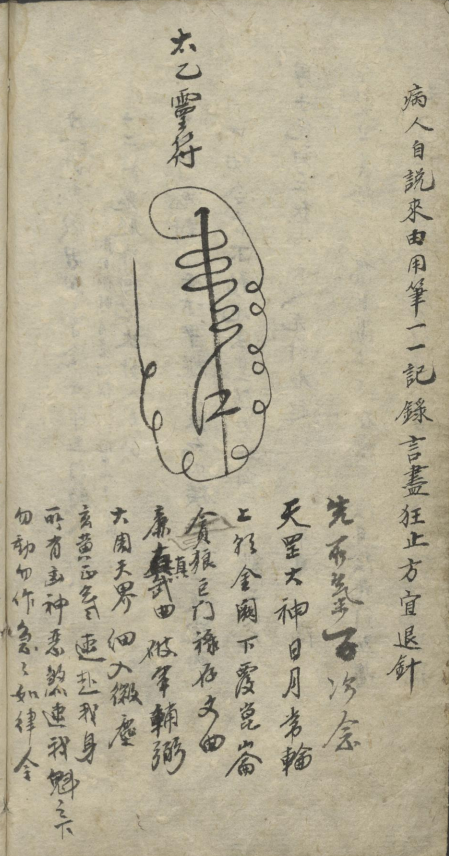 病人自説來由用筆一一記錄言盡狂止方宜退針
太乙靈符
先天炁百次念
天罡大神日月常輪
上朝金闕下覆崑崙
貪狼巨門祿存文曲
廉真武曲破軍輔弼
大周天界細入微塵
玄黄正炁速赴我身
所有凶神惡煞速我魁之下
勿動勿作急々如律令